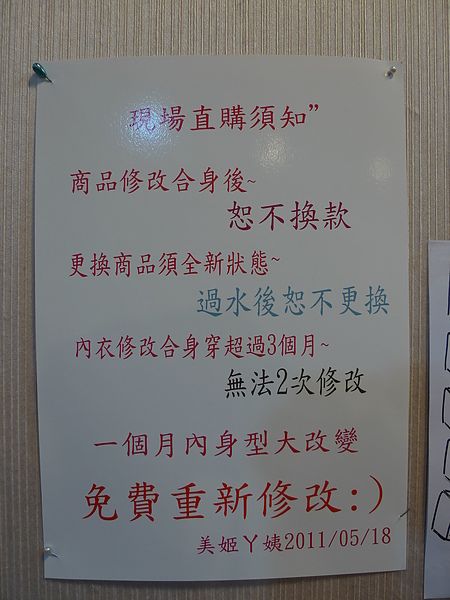 現場直購須知”
商品修改合身後~
恕不換款
更換商品須全新狀態~
過水後恕不更換
內衣修改合身穿超過3個月~
無法2次修改
一個月內身型大改變
免費重新修改:)
美姬丫姨2011/05/18